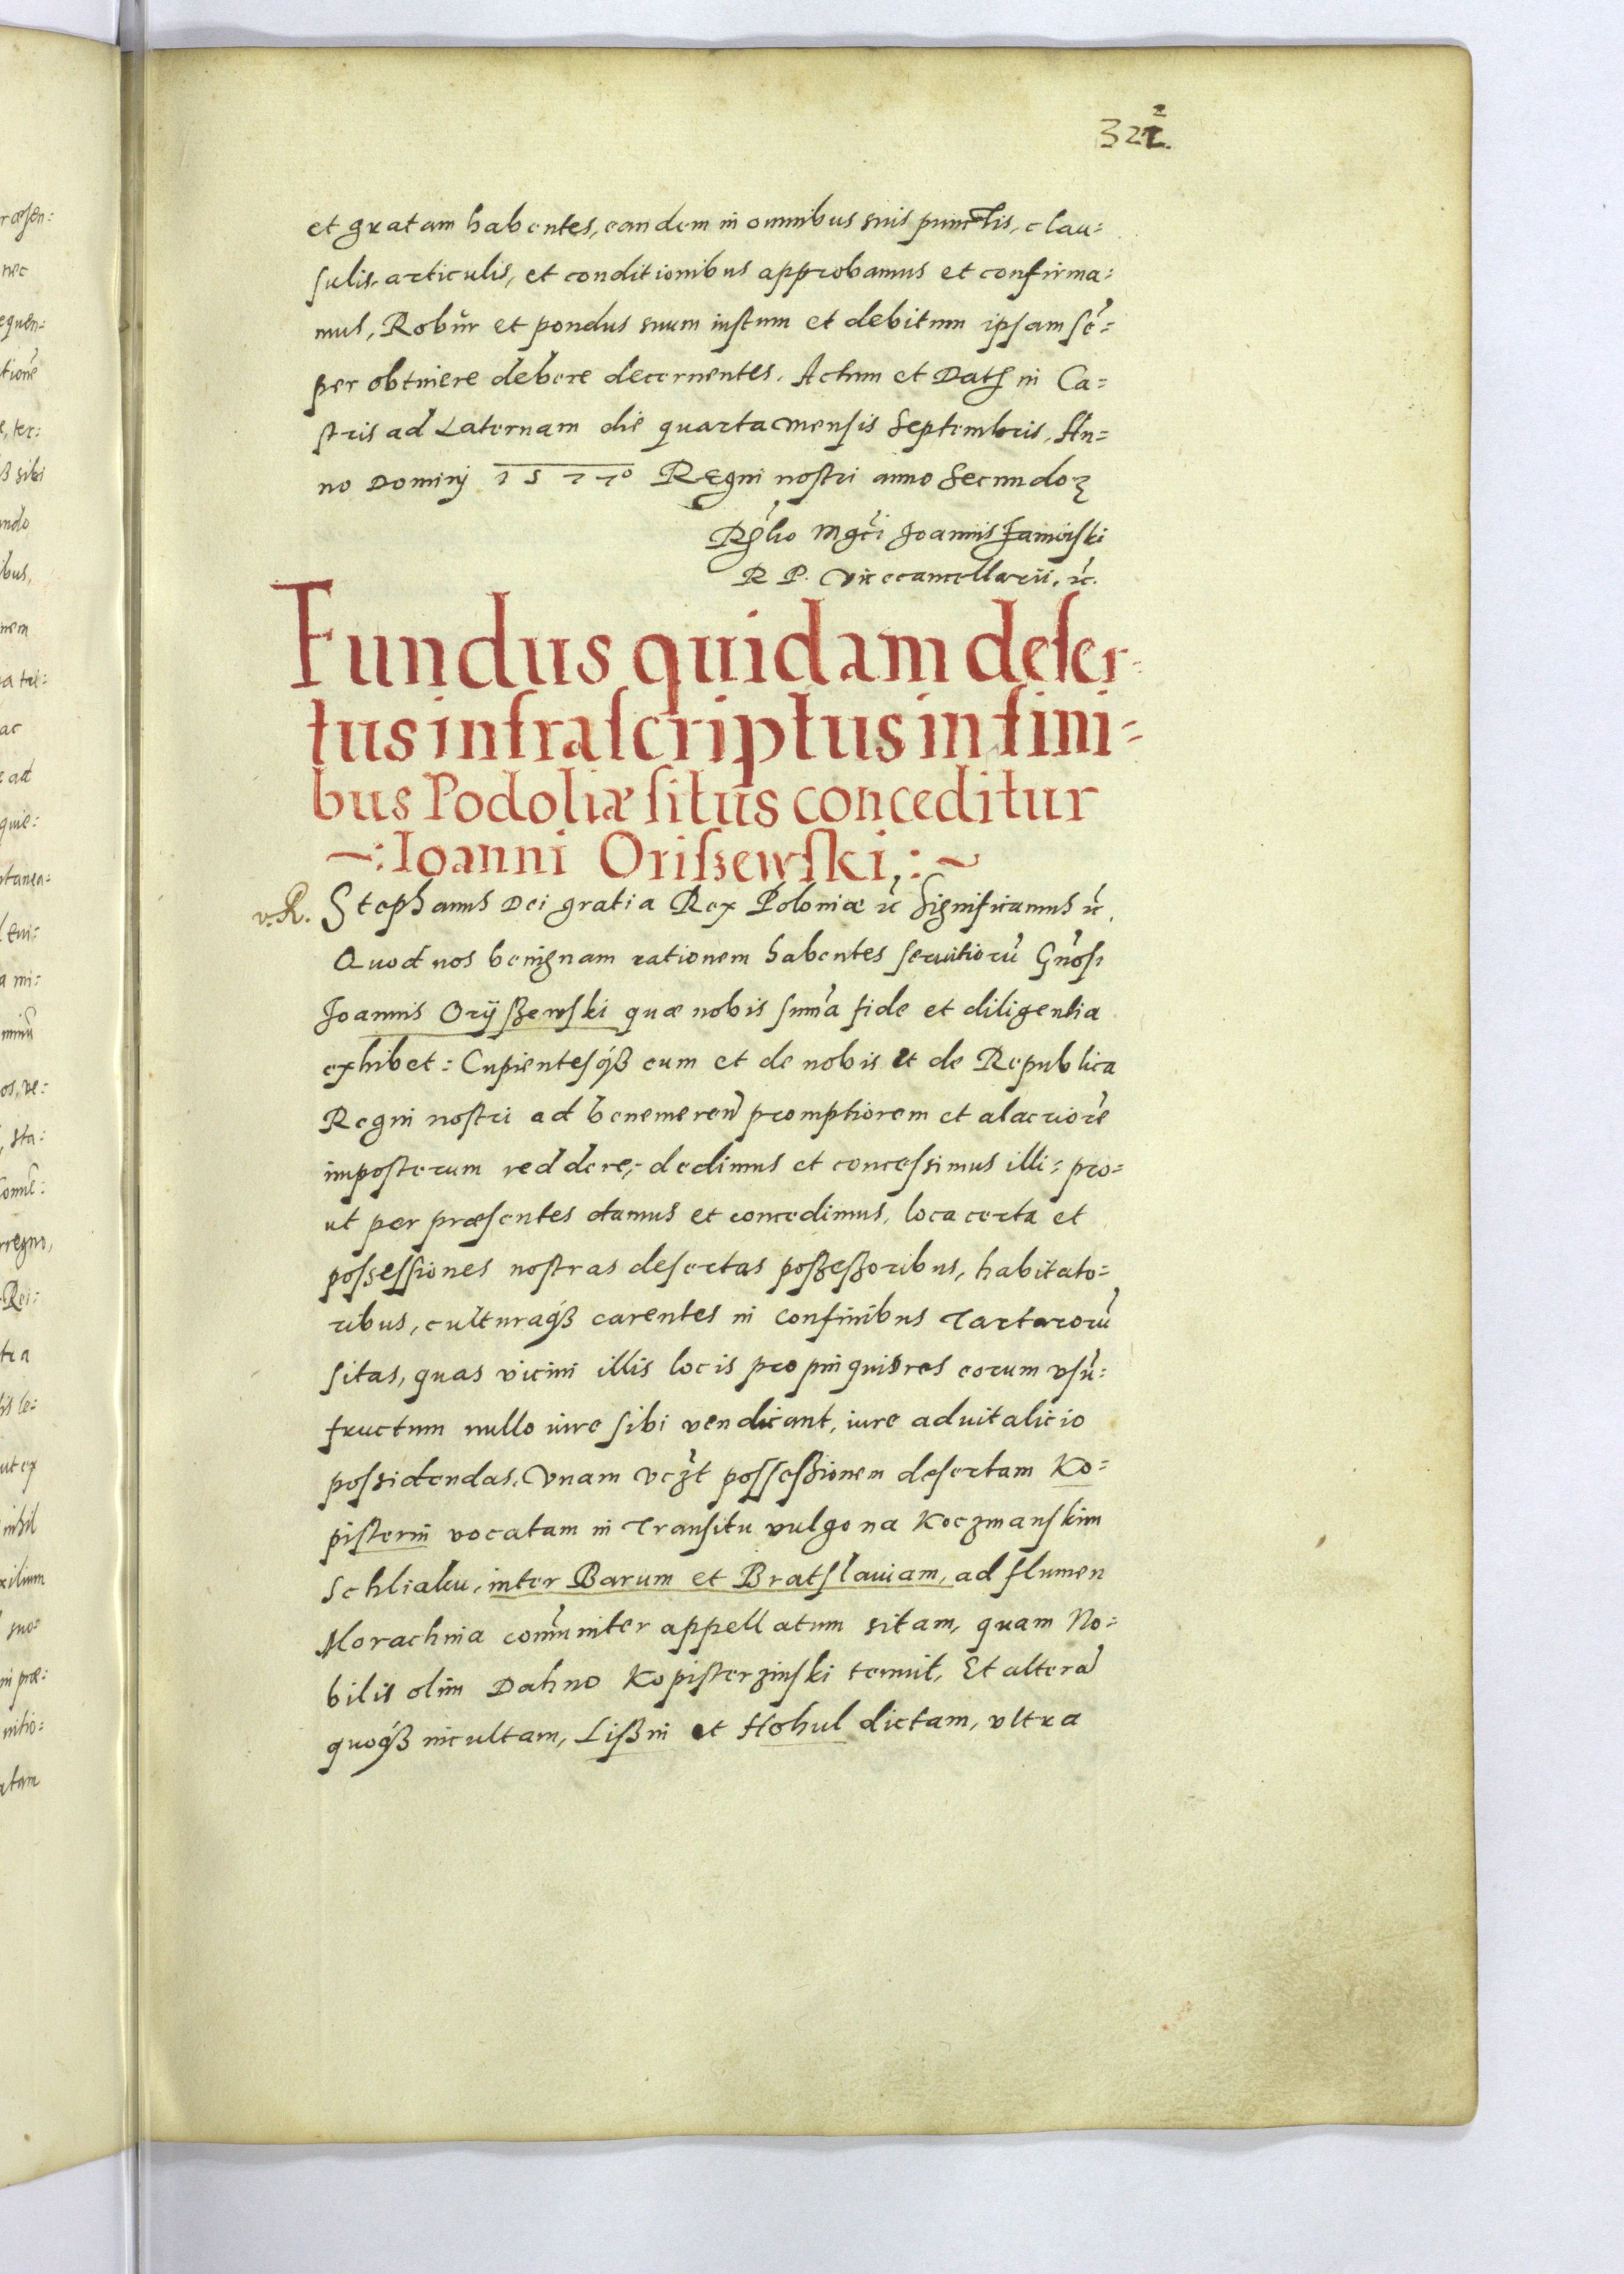 322.
et gratam habentes, eandem in omnibus suis punctis, clau=
sulis, articulis, et conditionibus approbamus et confirma=
mus, Robur et pondus suum iustum et debitum ipsam sē=
per obtinere debere decernentes. Actum et Dat in Ca=
stris ad Laternam die quarta mensis Septembris, An=
no Dominj 1577º Regni nostri anno Secundo
Rĺho Mgci Joannis Zamoiski
R P. Vicecancellarii, ꝛc.
Fundus quidam deser=
tus infrascriptus in fini=
bus Podoliæ situs conceditur
~:Ioanni Orißewski,:~
v.R. Stephanus Dei gratia Rex Poloniæ ꝛc Significamus ꝛc.
Quod nos benignam rationem habentes seruitiorū Gnosi
Joannis Oryßewski quæ nobis suma fide et diligentia
exhibet: Cupientesqß eum et de nobis et de Republica
Regni nostri ad benemerenď promptiorem et alacriorē
imposterum reddere, dedimus et concessimus illi= pro=
ut per præsentes damus et concedimus, loca certa et
possessiones nostras desertas poßeßoribus, habitato=
ribus, culturaqß carentes in confinibus Tartarorū
sitas, quas vicini illis locis propinquiores eorum vsū=
fructum nullo iure sibi vendicant, iure aduitalicio
possidendas. Vnam vczt posseßionem desertam Ko=
pisterin vocatam in Transitu vulgo na Koczmanskim
Schliaku, inter Barum et Bratslauiam, ad flumen
Morachwa comuniter appellatum sitam, quam No=
bilis olim Dahno Kopisterzinski tenuit, Et alterā
quoqß incultam, Lißin et Hohul dictam, vltra